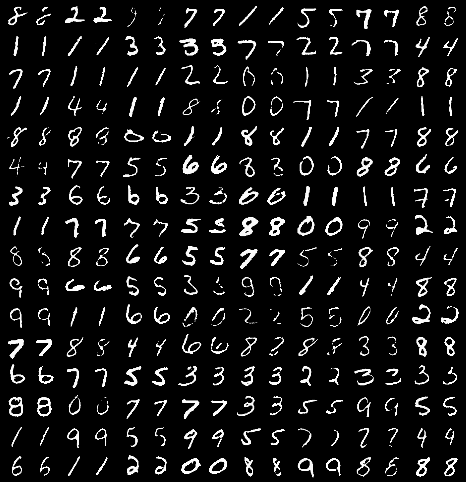 8 8 2 2 9 9 7 7 1 1 5 5 7 7 8 8
1 1 1 1 3 3 3 3 7 7 2 2 7 7 4 4
7 7 1 1 1 1 2 2 0 0 1 1 3 3 8 8
1 1 4 4 1 1 8 8 0 0 7 7 1 1 1 1
8 8 8 8 0 0 1 1 8 8 1 1 7 7 8 8
4 4 7 7 5 5 6 6 8 8 0 0 8 8 6 6
3 3 6 6 6 6 3 3 0 0 1 1 1 1 7 7
1 1 7 7 7 7 5 5 8 8 0 0 9 9 2 2
8 8 8 8 6 6 5 5 7 7 5 5 8 8 4 4
9 9 6 6 5 5 3 3 9 9 1 1 4 4 8 8
9 9 1 1 6 6 0 0 2 2 5 5 0 0 2 2
7 7 8 8 4 4 6 6 8 8 8 8 3 3 8 8
6 6 7 7 5 5 3 3 3 3 2 2 3 3 3 3
8 8 0 0 7 7 7 7 3 3 5 5 9 9 5 5
1 1 9 9 5 5 9 9 5 5 7 7 7 7 4 4
6 6 1 1 2 2 0 0 8 8 9 9 8 8 8 8